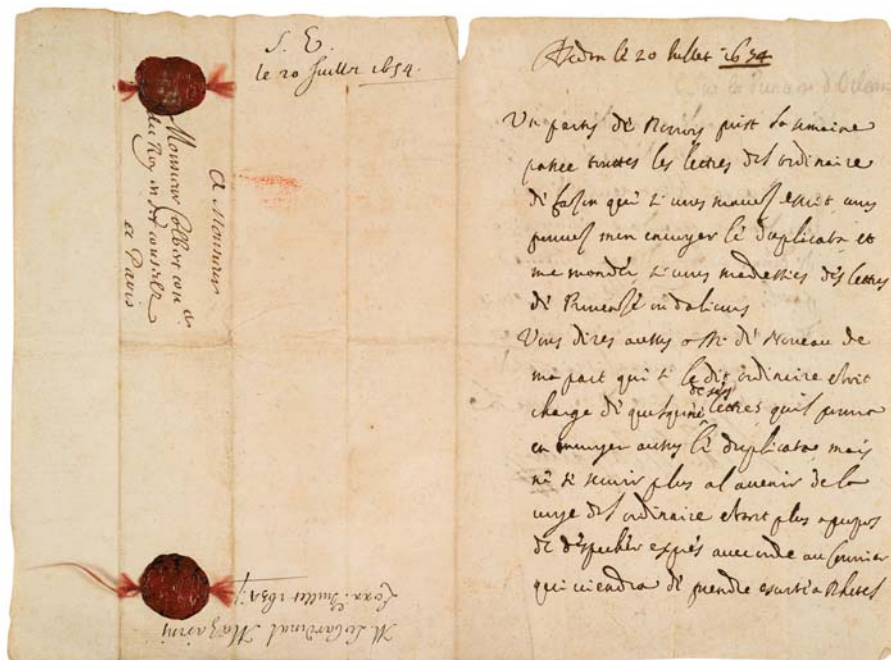 S. E.
le 20 Juillet 1654.
A Monsieur
Monsieur Colbert con er
du Roy en Ses conseilz
A Paris
M. Le Cardinal Mazarin
Juillet 1654
le 20 Juillet 1654
Un party de Rocroy prist la semaine
passee touttes les lettres del ordinaire
de fason que si vous mavez escrit vous
pouvez men envoyer le duplicata et
me mander si vous madressies des lettres
de ou dalieurs
Vous dires aussy a Mr de Noveau de
ma part que si le dit ordinaire estoit
de ses
charge de quelqune lettres quil pourra
en envoyer aussy le duplicata mais
ne se servir plus al avenir de la
voye del ordinaire estant plus apropos
de despecher expres avec ordre au Courrier
qui viendra de prendre escorte a Rhetel